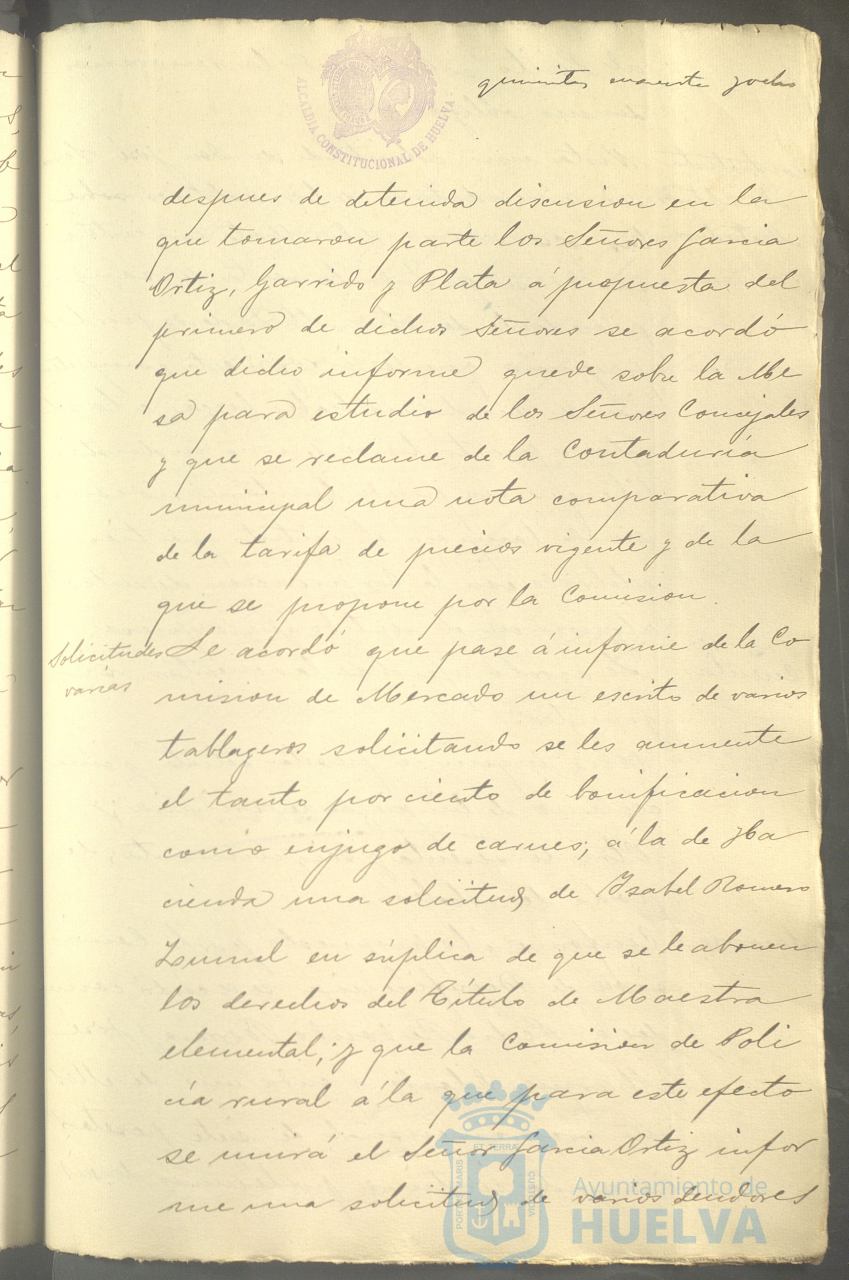 ALCALDIA CONSTITUCIONAL DE HUELVA
quinientos cuarenta y ocho
despues de detenida discusion en la
que tomaron parte los Señores Garcia
Ortiz, Garrido y Plata á propuesta del
primero de dichos Señores se acordó
que dicho informe quede sobre la Me
sa para estudio de los Señores Concejales
y que se reclame de la Contaduría
municipal una nota comparativa
de la tarifa de precios vigente y de la
que se propone por la Comision.
Solicitudes
varias
Se acordó que pase á informe de la Co
mision de Mercado un escrito de varios
tablageros solicitando se les aumente
el tanto por ciento de bonificacion
como enjugo de carnes; á la de Ha
cienda una solicitud de Ysabel Romero
en súplica de que se le abonen
los derechos del Título de Maestra
elemental; y que la Comision de Poli
cía rural á la que para este efecto
se unirá el Señor Garcia Ortiz infor
me una solicitud de varios
PORTUS MARIS ET TERRAE CUSTODIA
Ayuntamiento de
HUELVA